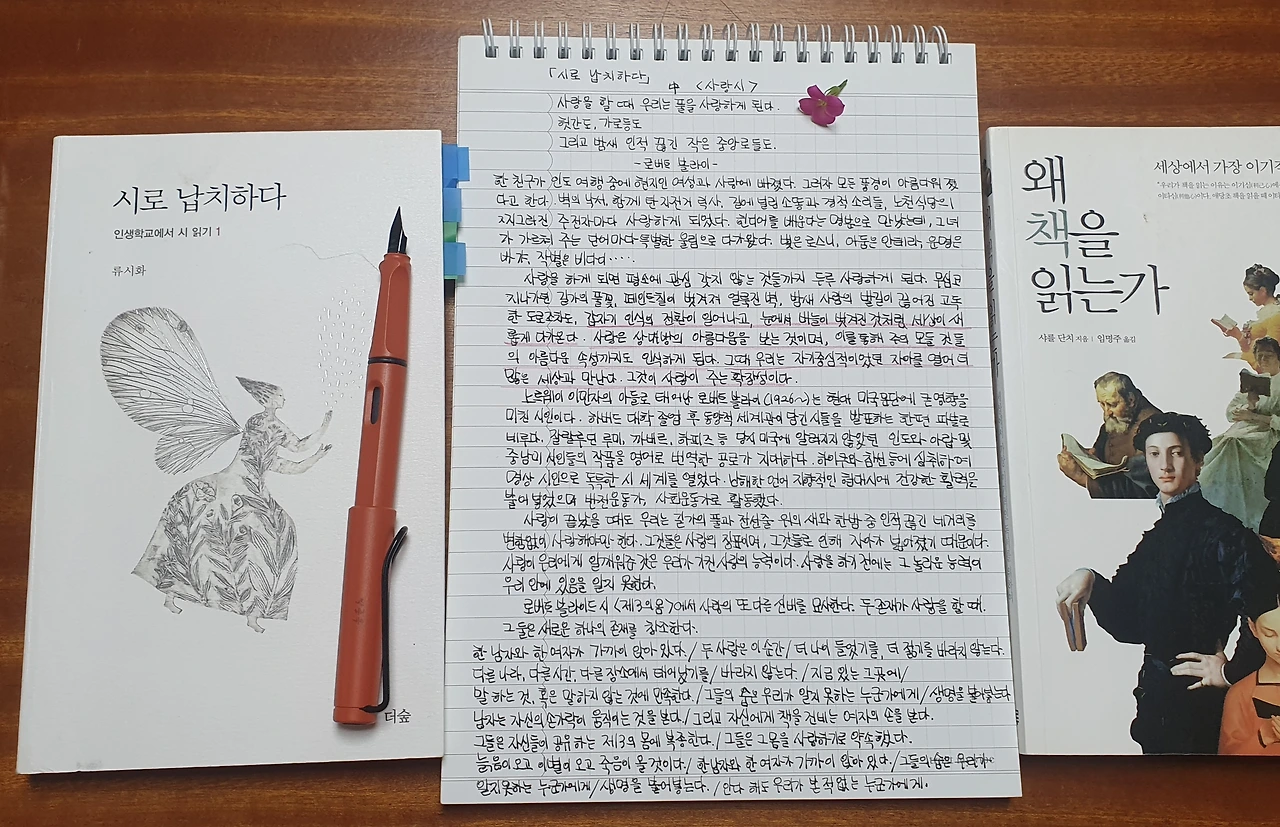 시로 납치하다
인생학교에서 시 읽기 1
류시화
더숲
「시로 납치하다」 中 <사랑시>
사랑을 할 때 우리는 풀을 사랑하게 된다.
헛간도, 가로등도
그리고 밤새 인적 끊긴 작은 중앙로들도.
-로버트 블라이-
한 친구가 인도 여행 중에 현지인 여성과 사랑에 빠졌다. 그러자 모든 풍경이 아름다워 졌
다고 한다. 벽의 낙서, 함께 탄 자전거 릭샤, 길에 널린 소똥과 경적 소리들, 노천식당의
찌그러진 주전자마다 사랑하게 되었다. 힌디어를 배운다는 명분으로 만났는데, 그녀
가 가르쳐 주는 단어마다 특별한 울림으로 다가왔다. 빛은 로스니, 어둠은 안데라, 운명은
바갸, 작별은 비다이·····
사랑을 하게 되면 평소에 관심 갖지 않는 것들까지 두루 사랑하게 된다. 무심코
지나가던 길가의 풀꽃, 페인트칠이 벗겨져 얼룩진 벽, 밤새 사람의 발길이 끊어진 고독
한 도로조차도. 갑자기 인식의 전환이 일어나고, 눈에서 비늘이 벗겨진 것처럼 세상이 새
롭게 다가온다. 사랑은 상대방의 아름다움을 보는 것이며, 이를 통해 주위 모든 것들
의 아름다운 속성까지도 인식하게 된다. 그때 우리는 자기중심적이었던 자아를 열어 더
많은 세상과 만난다. 그것이 사랑이 주는 확장성이다.
노르웨이 이민자의 아들로 태어난 로버트 블라이(1926~)는 현대 미국 문단에 큰 영향을
미친 시인이다. 하버드 대학 졸업 후 동양적 세계관이 담긴 시들을 발표하는 한편 파블로
네루다, 잘랄루딘 루미, 까비르, 하피즈 등 당시 미국에 알려지지 않았던 인도와 아랍 및
중남미 시인들의 작품을 영어로 번역한 공로가 지대하다. 하이쿠와 참선 등에 심취하여
명상 시인으로 독특한 시 세계를 열었다. 난해한 언어 지향적인 현대시에 건강한 활력을
불어 넣었으며 반전운동가, 사회운동가로 활동했다.
사랑이 끝났을 때도 우리는 길가의 풀과 전선줄 위의 새와 한밤 중 인적 끊긴 네거리를
변함없이 사랑해야만 한다. 그것들은 사랑의 징표이며, 그것들로 인해 자아가 넓어졌기 때문이다.
사랑이 우리에게 일깨워준 것은 우리가 가진 사랑의 능력이다. 사랑을 하기 전에는 그 놀라운 능력이
우리 안에 있음을 알지 못한다.
로버트 블라이도 시 <제3의 몸>에서 사랑의 또 다른 신비를 묘사한다. 두 존재가 사랑을 할 때.
그들은 새로운 하나의 존재를 창조한다.
한 남자와 한 여자가 가까이 앉아 있다./ 두 사람은 이 순간/ 더 나이 들었기를, 더 젊기를 바라지 않는다.
다른 나라, 다른 시간, 다른 장소에서 태어났기를/ 바라지 않는다./ 지금 있는 그곳에/
말 하는 것, 혹은 말하지 않는 것에 만족한다./ 그들의 숨은 우리가 알지 못하는 누군가에게/ 생명을 불어넣는다
남자는 자신의 손가락이 움직이는 것을 본다./ 그리고 자신에게 책을 건네는 여자의 손을 본다.
그들은 자신들이 공유 하는 제3의 몸에 복종한다./ 그들은 그 몸을 사랑하기로 약속했다.
늙음이 오고 이별이 오고 죽음이 올 것이다./ 한 남자와 한 여자가 가까이 앉아 있다./ 그들의 숨은 우리가
알지 못하는 누군가에게/ 생명을 불어넣는다./ 안다 해도 우리가 본 적 없는 누군가에게.
왜
책을
읽는가
세상에서 가장 이기적
샤를 단치 지음 | 임명주 옮김